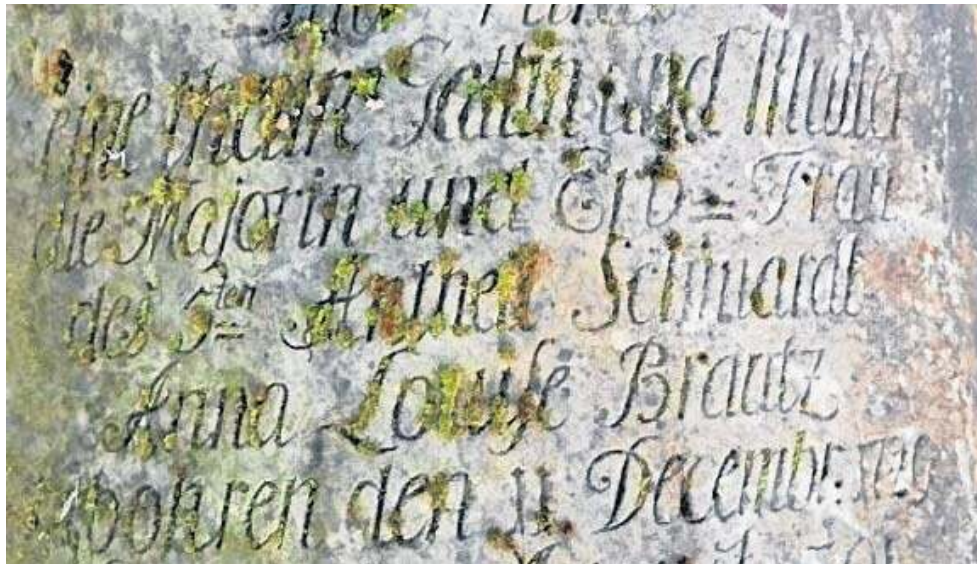 eine theure Gattin und Mutter
die Majorin und Erb= Frau
des 5ten Antheil Schwardt
Anna Louise Brautz
gebohren den 11 Decembr: